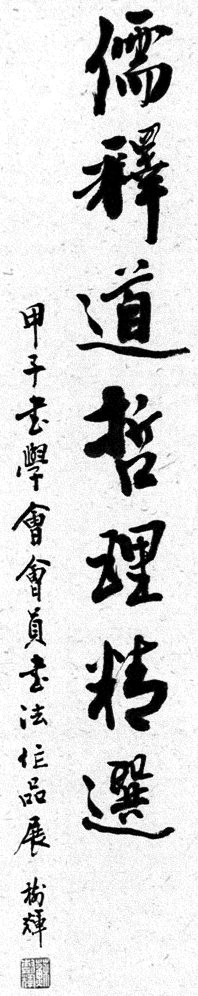 儒釋道哲理精選
甲子書學會會員書法作品展 樹輝